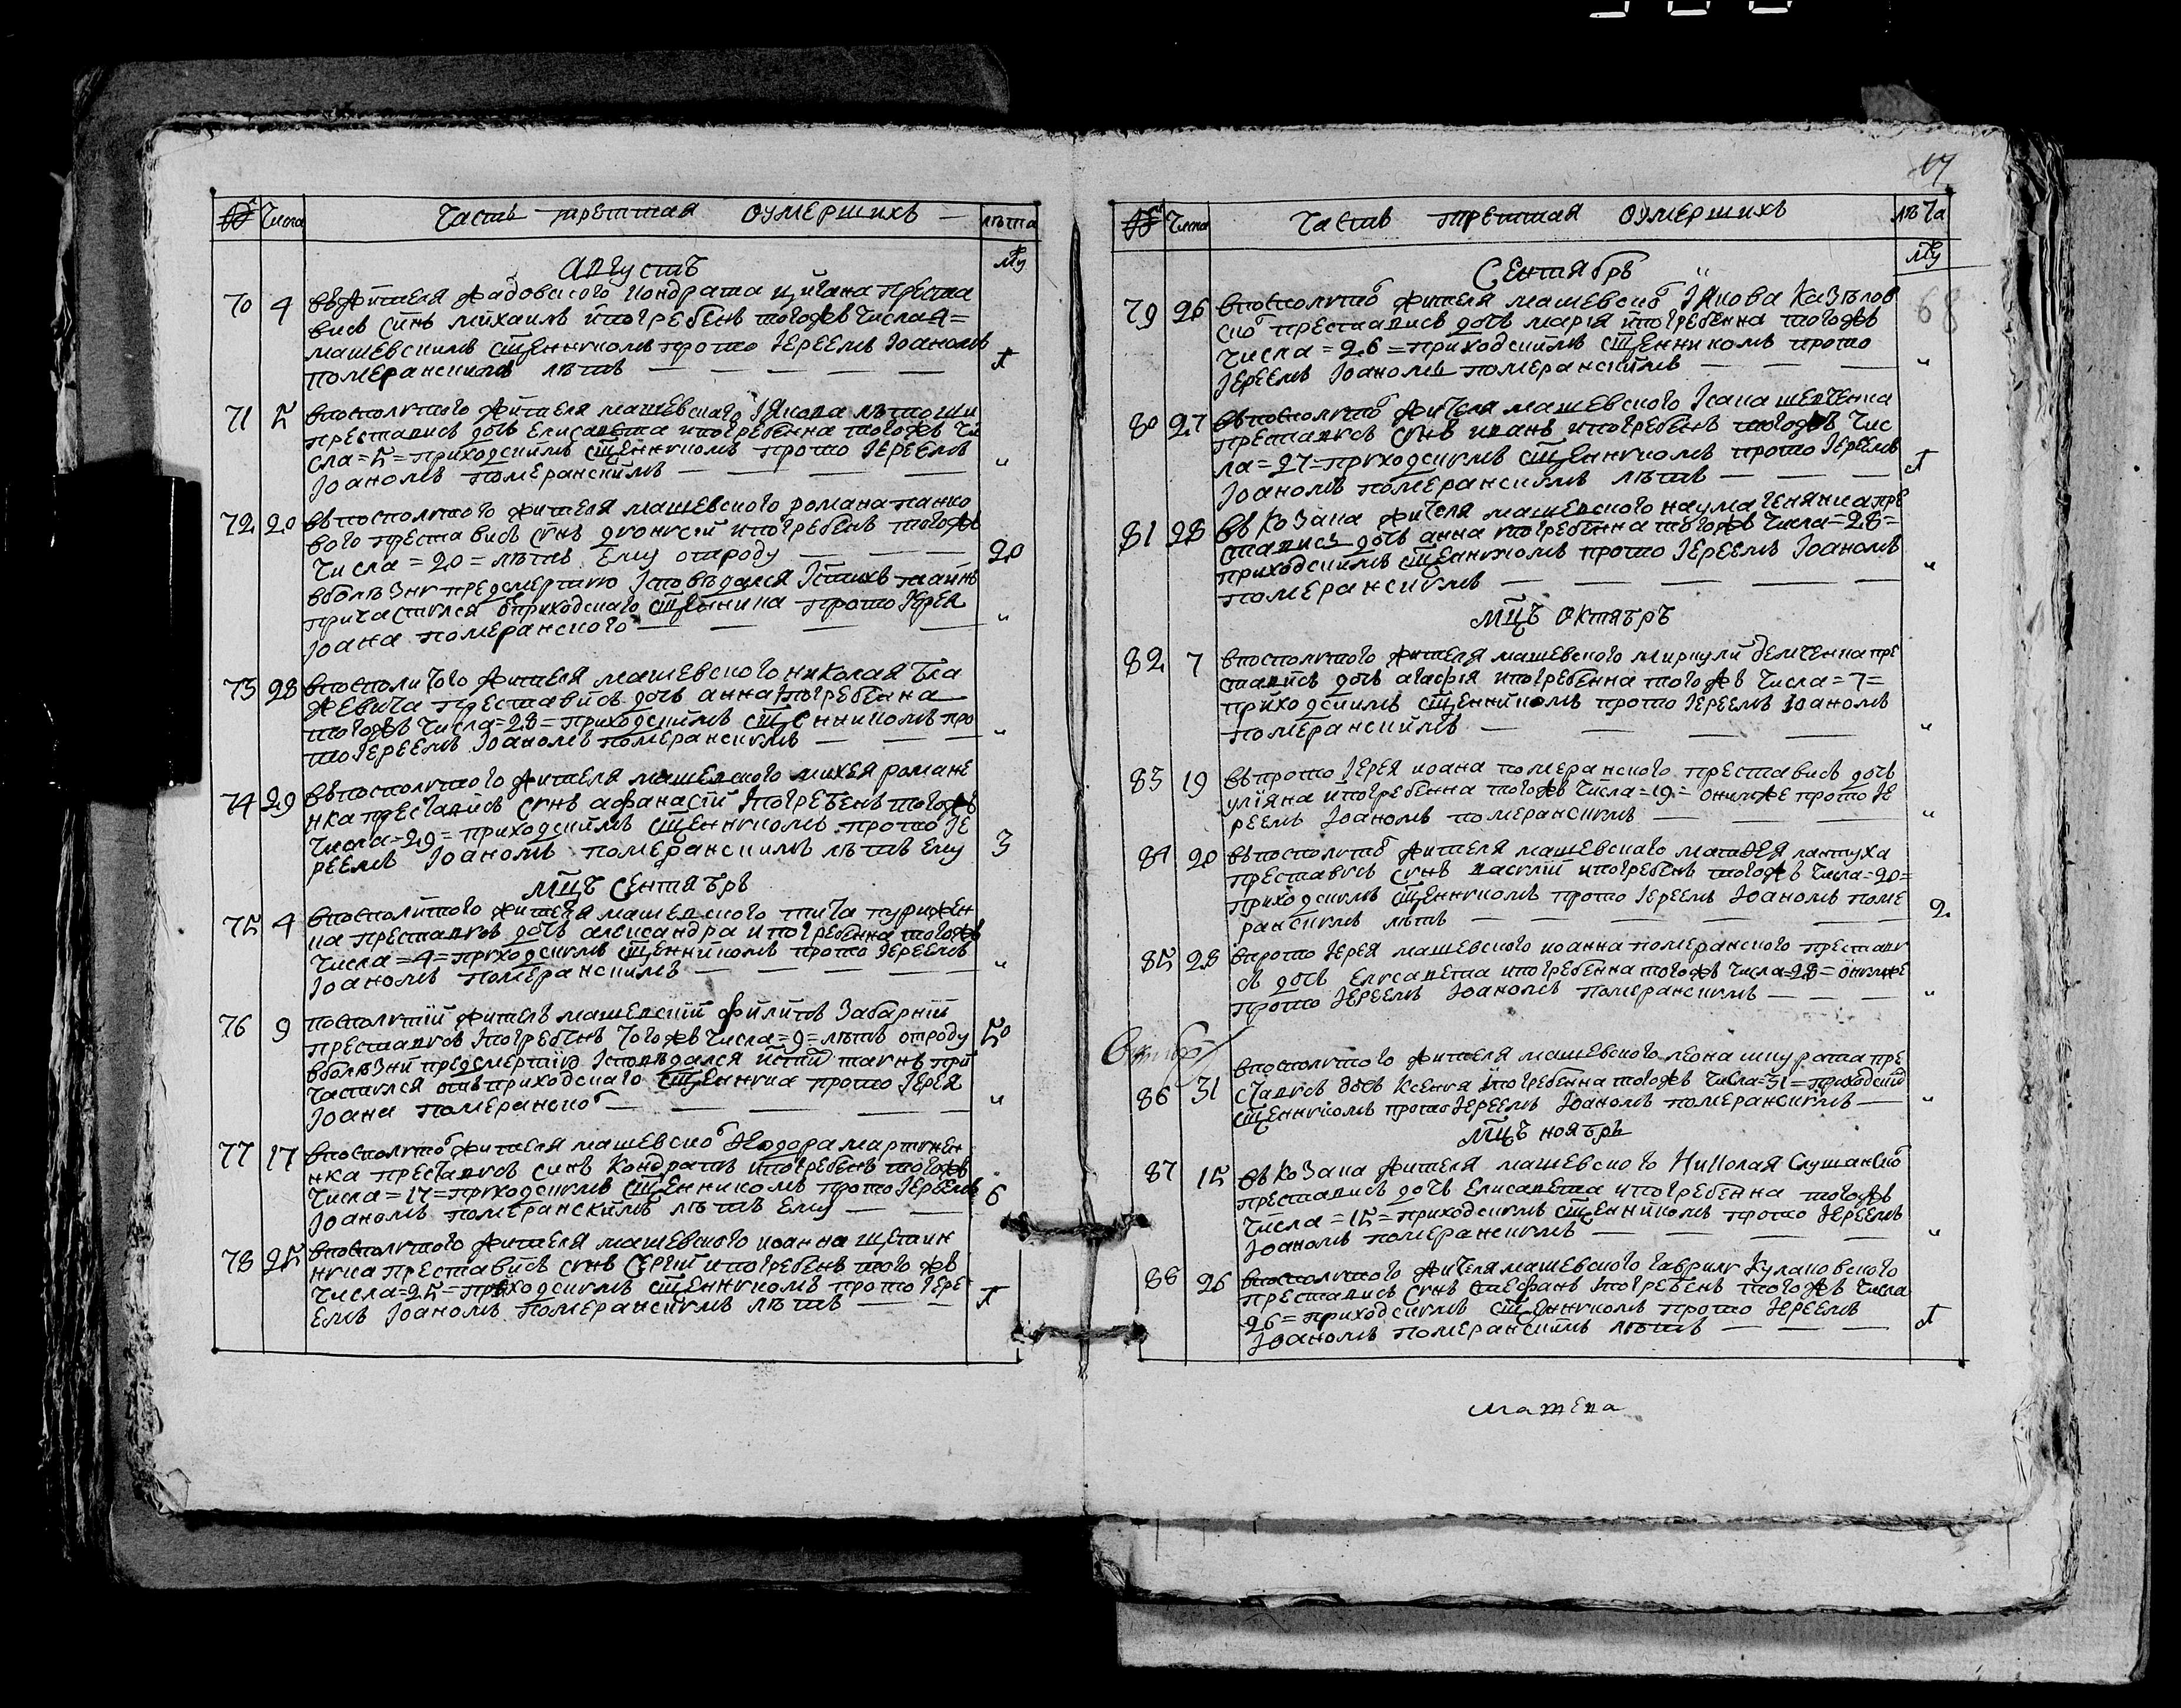 № Числа Часть третшая оумершихъ лѣта
Му
Августъ
70 4 въ жителя жадовского кондрата цигана преста
вись синъ михаилъ и погребенъ тогожъ числа 4 =
машевскимъ сщенникомъ прото Iереемъ Iоаномъ
померанскимъ лѣтъ 1
71 5 впосполитого жителя машевского Iякова
преставись дочь Елисавета и погребенна тогожъ чи
сла = 5 = приходскимъ сщенникомъ прото Iереемъ
Iоаномъ померанскимъ "
72 20 въ посполитого жителя машевского романа панко
вого преставись синъ дионисiй и погребенъ тогожъ
числа = 20 = лѣтъ Ему отроду 20
вболѣзни предсмертною Iсповѣдался Iстихъ таинъ
причастился отприходского сщенника прото Iерея
Iоана померанского "
73 28 впосполитого жителя машевского николая бла
жевича преставись дочь анна Iпогребенна
тогожъ числа = 28 = приходскимъ сщенникомъ про
то Iереемъ Iоаномъ померанскимъ "
74 29 въ посполитого жителя машевского михея романе
нка преставись синъ афанасiй Iпогребенъ тогожъ
числа = 29 = приходскимъ сщенникомъ прото Iе
реемъ Iоаномъ померанскимъ лѣтъ Ему 3
Мцъ Сентябръ
75 4 впосполитого жителя машевского тита пуриxен
ка преставись дочь александра и погребенна тогожъ
числа = 4 = приходскимъ сщенникомъ прото Iереемъ
Iоаномъ померанскимъ "
76 9 посполитiй житель машевскiй филипъ Забарнiй
преставись Iпогребенъ тогожъ числа = 9 = лѣтъ отроду 50
вболѣзни предсмертною Iсповѣдался истихъ таинъ при
частился отъ приходского сщенника прото Iерея
Iоана померанского "
77 17 впосполито жителя машевско Ѳеодора мартинен
нка преставись синъ Кондратъ ипогребенъ тогожъ
числа = 17 = приходскимъ сщенникомъ прото Iереемъ
Iоаномъ померанскимъ лѣтъ Ему 6
78 25 впосполитого жителя машевского иоанна щетин
ника преставись синъ Сергiй ипогребенъ тогожъ
числа = 25 = приходскимъ сщенникомъ прото Iере
емъ Iоаномъ померанскимъ лѣтъ 1
17
№ Числа Часть третшая оумершихъ лѣта
Му
Сентябръ
68
79 26 впосполито жителя машевско Iякова Казѣлов
ско преставись дочь марiя ипогребенна тогожъ
числа = 26 = приходскимъ сщенникомъ прото
Iереемъ Iоаномъ померанскимъ "
80 27 въпосполито жителя машевского Iсака шевченка
преставись синъ иванъ ипогребенъ тогожъ чис
ла = 27 = приходскимъ сщенникомъ прото Iереемъ
Iоаномъ померанскимъ лѣтъ 1
81 28 въ козака жителя машевского наума пре
ставись дочь анна ипогребенна тогожъ числа = 28 =
приходскимъ сщенникомъ прото Iереемъ Iоаномъ
померанскимъ "
Мцъ октябръ
82 7 впосполитого жителя машевского миркули демченка пре
ставись дочь агафiя ипогребенна тогожъ числа = 7 =
приходскимъ сщенникомъ прото Iереемъ Iоаномъ
померанскимъ "
83 19 въ прото Iерея иоана померанского преставись дочь
улiяна ипогребенна тогожъ числа = 19 = онимже прото Iе
реемъ Iоаномъ померанскимъ "
84 20 въпосполито жителя машевского матѳея лантуха
преставись синъ василiй ипогребенъ тогожъ числа = 20 =
приходскимъ сщенникомъ прото Iереемъ Iоаномъ поме
ранскимъ лѣтъ 2
85 28 впрото Iерея машевского иоанна померанского престави
сь дочь Елисавета ипогребенна тогожъ числа = 28 = онимже
прото Iереемъ Iоаномъ померанскимъ "
Октябръ
впосполитого жителя машевского леона шкурата пре
86 31 ставись дочь Ксения ипогребенна тогожъ числа = 31 = приходски
сщенникомъ прото Iереемъ Iоаномъ померанскимъ "
Мцъ ноябръ
87 15 въ козака жителя машевского Николая
преставись дочь Елисавета ипогребенна тогожъ
числа = 15 = приходскимъ сщенникомъ прото Iереемъ
Iоаномъ померанскимъ "
88 26 впосполитого жителя машевского гаврили Кулаковского
преставись синъ Стефанъ Iпогребенъ тогожъ числа
26 = приходскимъ сщенникомъ прото Iереемъ
Iоаномъ померанскимъ лѣтъ 1